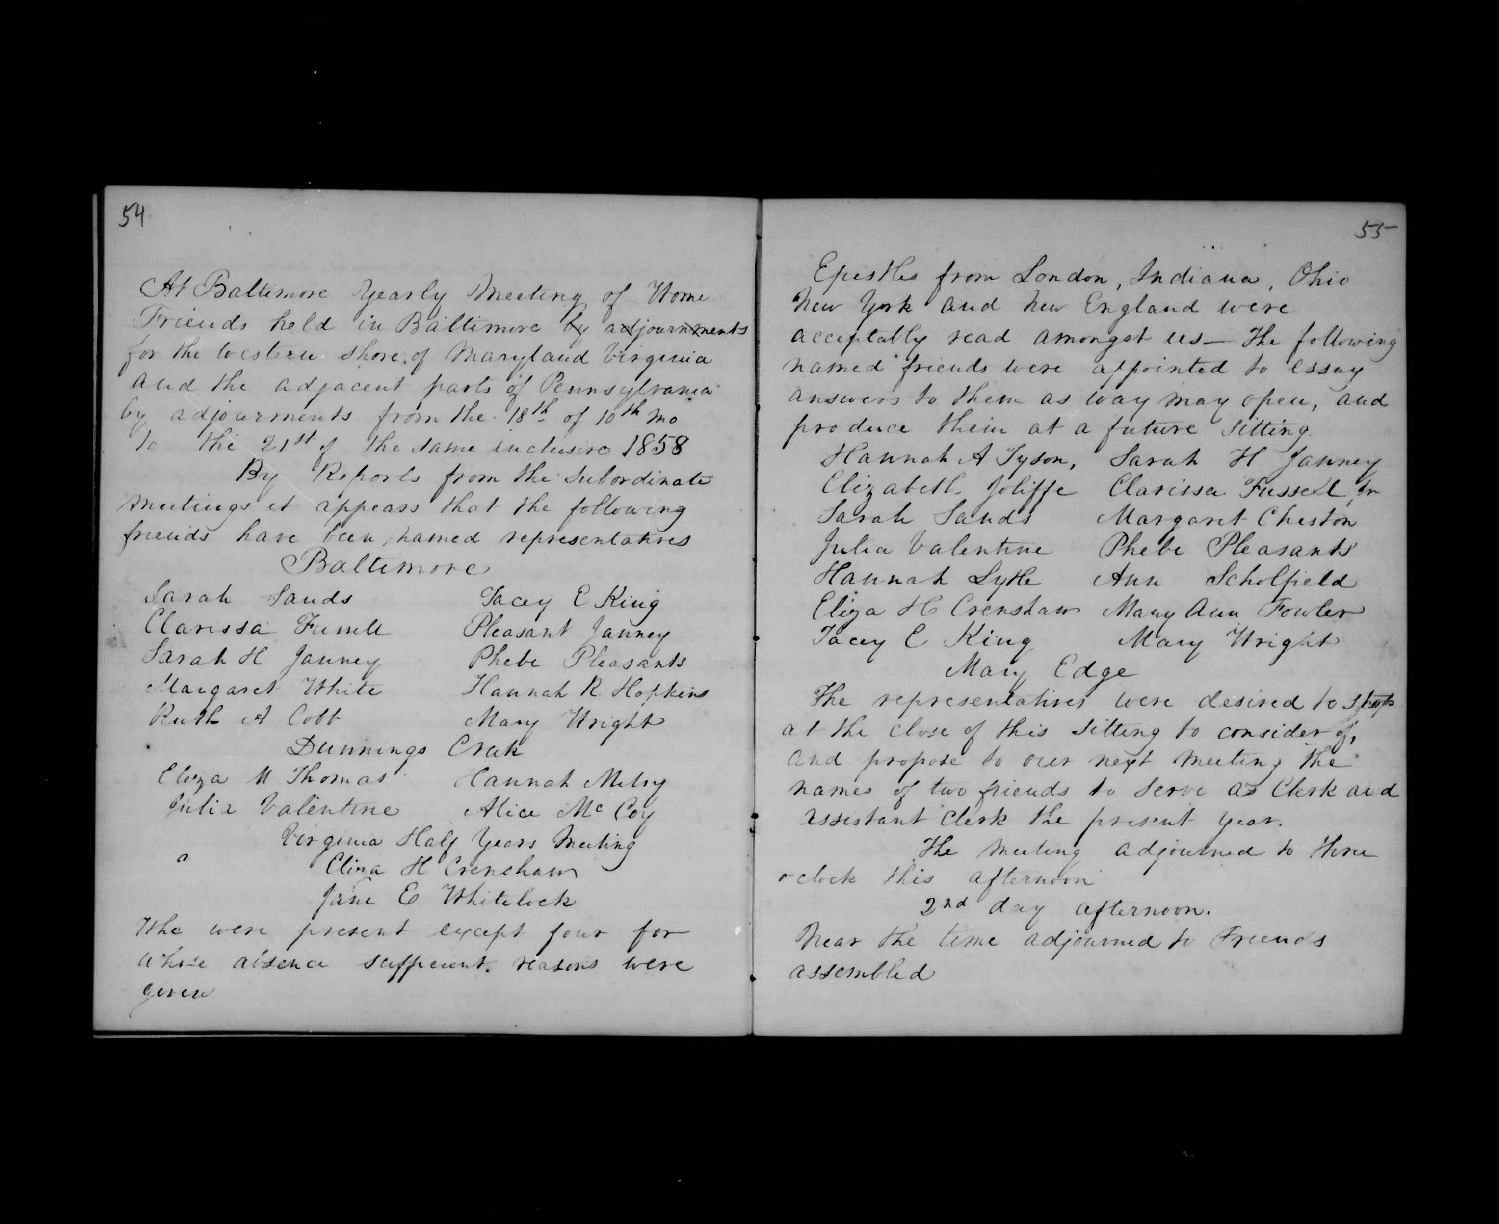 54
At Baltimore Yearly Meeting of Wome
Friends held in Baltimore by adjournments
for the Western Shore of Maryland Virginia
and the adjacent parts of Pennsylvania
by adjournments from the 18th of 10th Mo
to the 21st of the same inclusive 1858
By Reports from the Subordinate
Meetings it appears that the following
friends have been named representatives
Baltimore
Sarah Sands Tacey E King
Clarissa Pleasant Janney
Sarah H Janney Phebe Pleasants
Margaret White Hannah R Hopkins
Ruth A Cobb Mary Wright
Dunnings Creek
Eliza M Thomas Hannah
Julia Valentine Alice McCoy
Virginia Half Years Meeting
Eliza H Crenshaw
Jane E Whitelock
Who were present except four for
whose absence sufficient reasons were
given
55
Epistles from London, Indiana, Ohio
New York and New England were
acceptably read amongst us — The following
named friends were appointed to essay
answers to them as way may open, and
produce them at a future sitting
Hannah A Tyson, Sarah H Janney
Elizabeth Joliffe Clarissa Fussell Jr
Sarah Sands Margaret Cheston
Julia Valentine Phebe Pleasants
Hannah Lytle Ann Scholfield
Eliza H Crenshaw Mary Ann Fowler
Tacey E King Mary Wright
Mary Edge
The representatives were desired to stop
at the close of this sitting to consider of,
and propose to our next meeting the
names of two friends to serve as Clerk and
assistant Clerk the present year.
The meeting adjourned to three
oclock this afternoon
2nd day afternoon.
Near the time adjourned to Friends
assembled